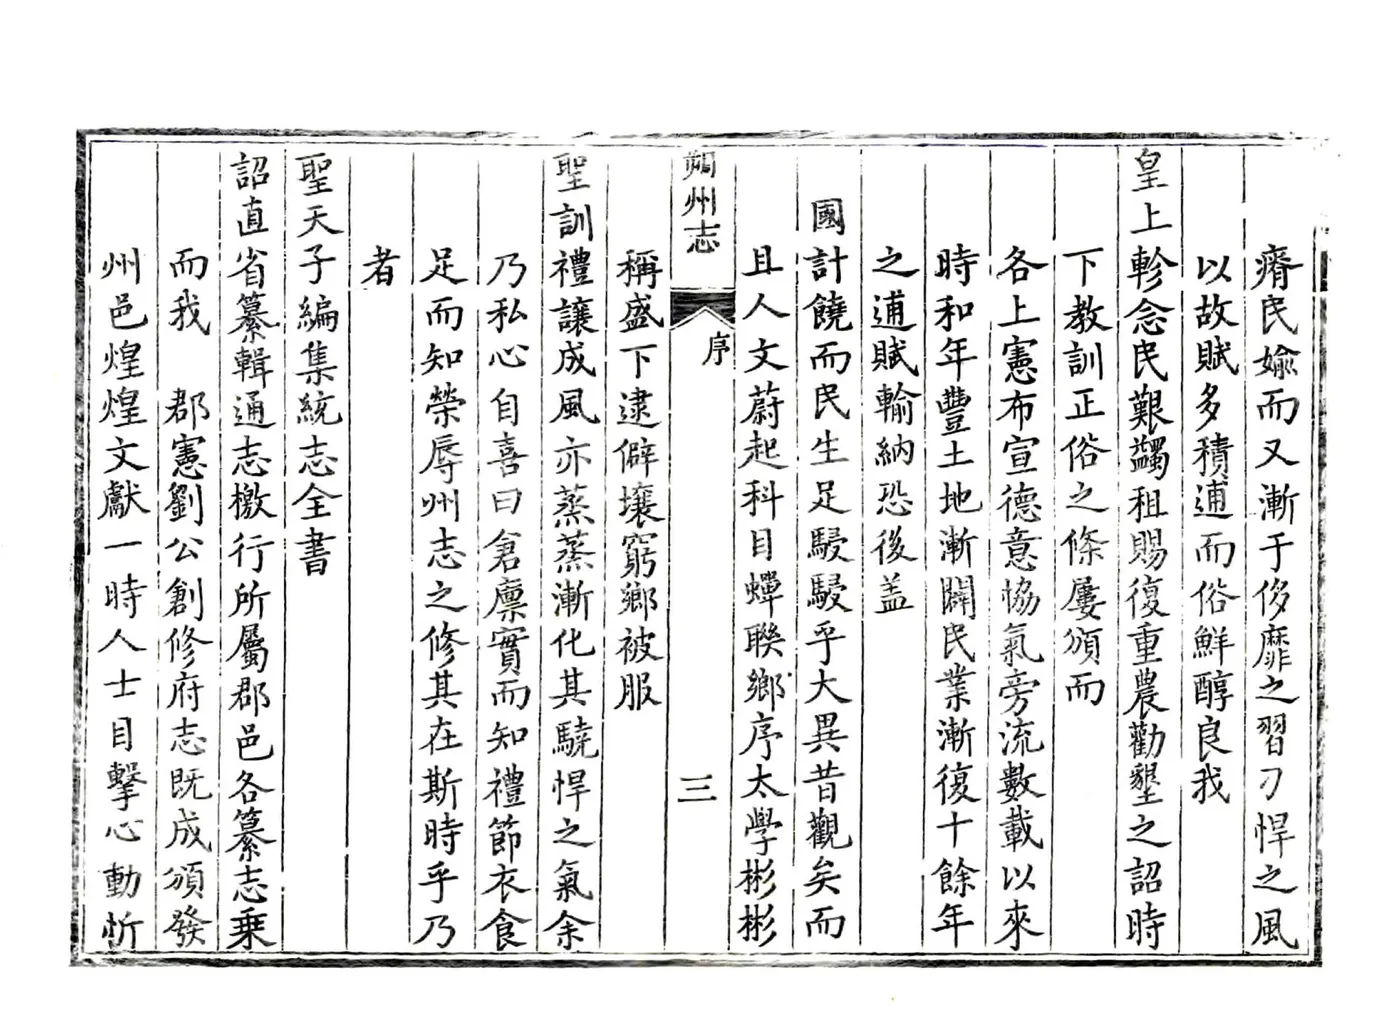 瘠民媮而又漸于侈靡之習刁悍之風
以故賦多積逋而俗鮮醇良我
皇上軫念民艱蠲租賜復重農勸墾之詔時
下教訓正俗之條屢頒而
各上憲布宣德意協氣旁流數載以來
時和年豐土地漸闢民業漸復十餘年
之逋賦輸納恐後盖
國計饒而民生足駸駸乎大異昔觀矣而
且人文蔚起科目蟬聯鄉序太學彬彬
朔州志 序 三
稱盛下逮僻壤窮鄉被服
聖訓禮讓成風亦蒸蒸漸化其驍悍之氣余
乃私心自喜曰倉廩實而知禮節衣食
足而知榮辱州志之修其在斯時乎乃
者
聖天子編集統志全書
詔直省纂輯通志檄行所屬郡邑各纂志乗
而我 郡憲劉公創修府志既成頒發
州邑煌煌文獻一時人士目擊心動忻